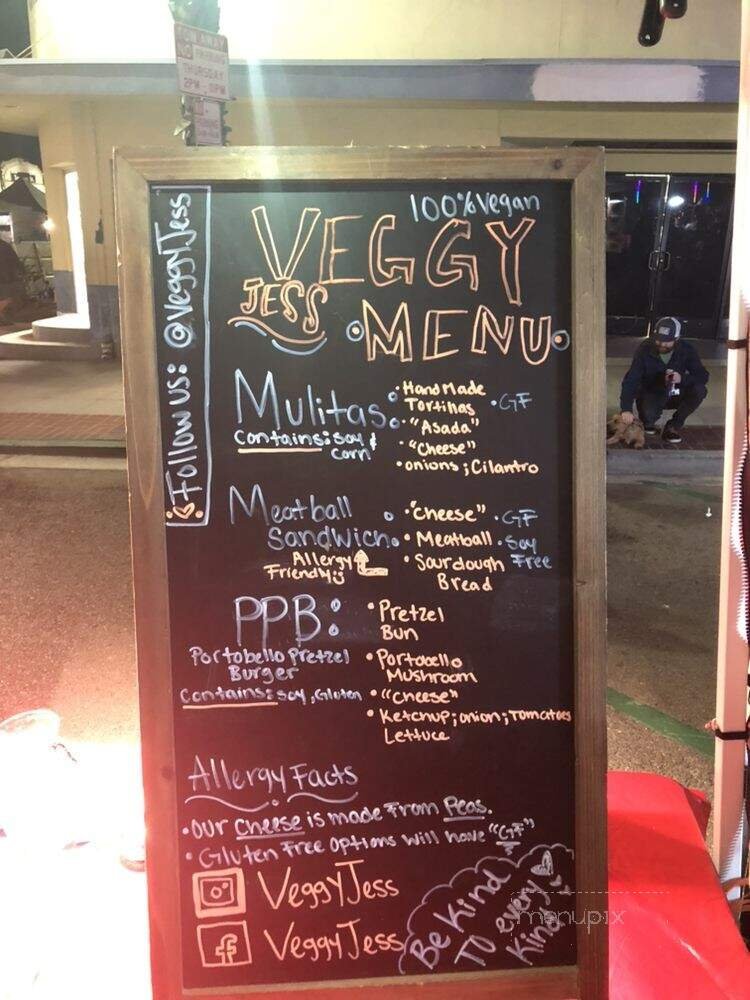 TOW AWAY
NO PARKING
THURSDAY
Follow us: @VeggyJess
100% Vegan
VEGGY
JESS
MENU
Mulitas:
Contains: soy &
corn
• Hand Made
Tortillas • GF
• "Asada"
• "Cheese"
• onions; Cilantro
Meatball
Sandwich:
Allergy
Friendly
• "Cheese" • GF
• Meatball • Soy
Free
• Sourdough
Bread
PPB:
Portobello Pretzel
Burger
Contains: soy, Gluten
• Pretzel
Bun
• Portobello
Mushroom
• "Cheese"
• Ketchup; onion; Tomatoes
Lettuce
Allergy Facts
• Our cheese is made from Peas.
• Gluten Free options will have "GF"
VeggyJess
f VeggyJess
Be Kind
To every
Kind
menupix